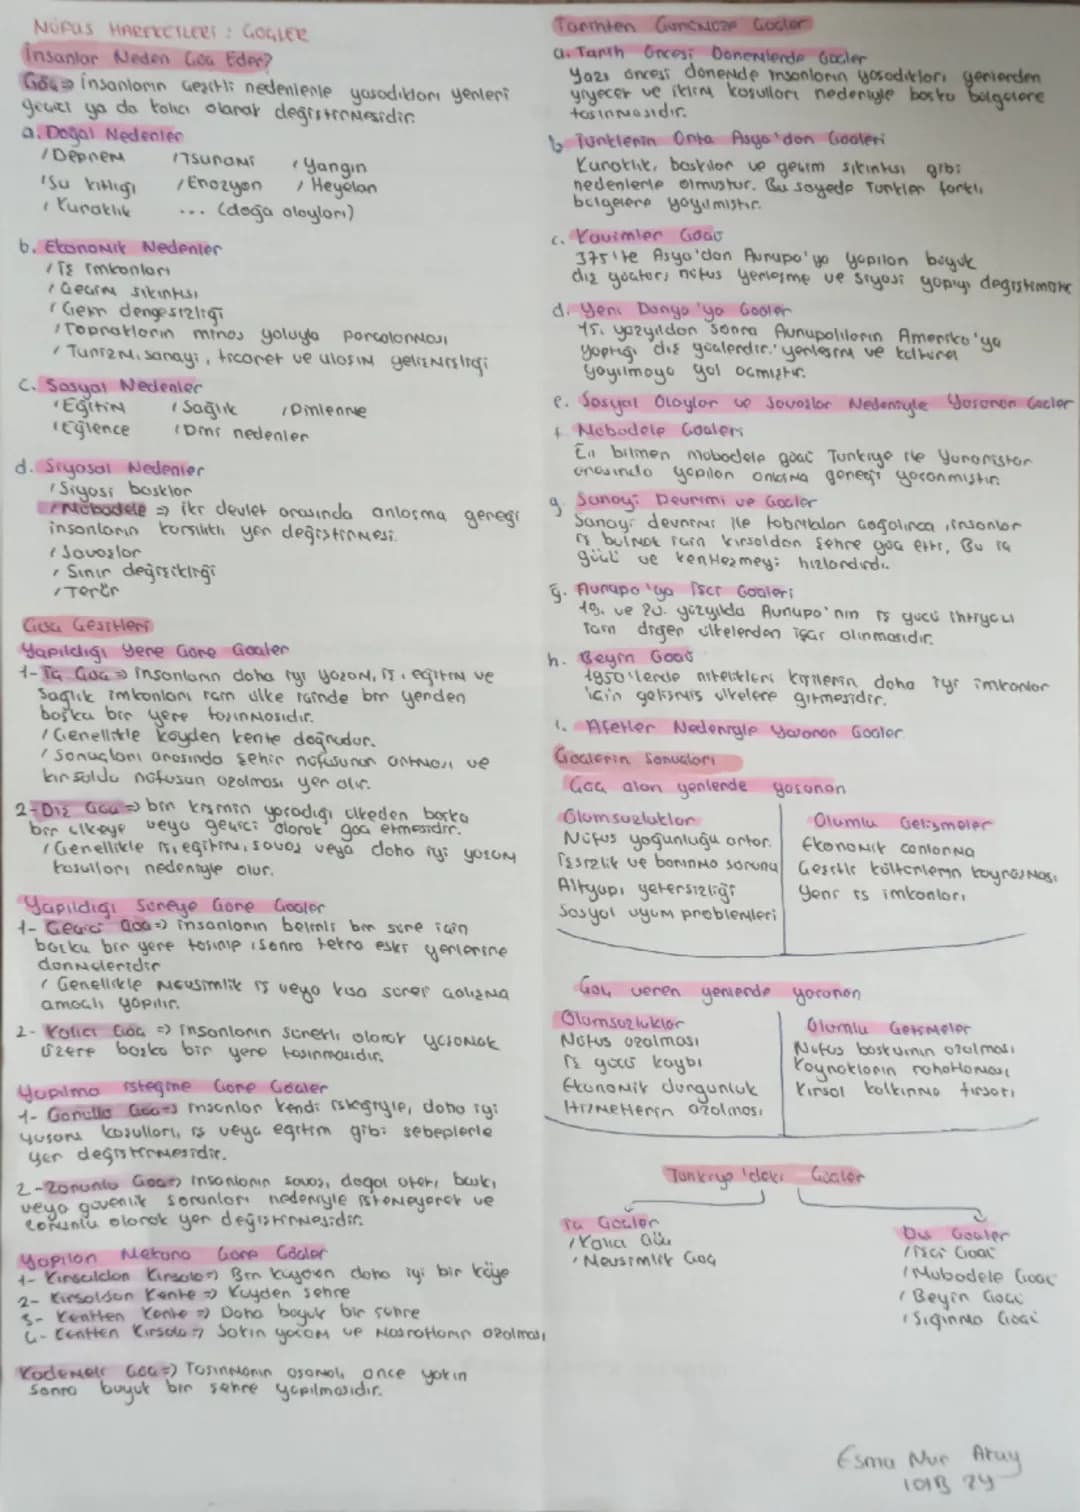 NÜFUS HAREKETLERİ : GÖÇLER
İnsanlar Neden Göç Eder?
Göç => insanların çeşitli nedenlerle yaşadıkları yerleri
geçici ya da kalıcı olarak değiştirmesidir.
a. Doğal Nedenler
/ Deprem / Tsunami / Yangın
/ Su kıtlığı / Erozyon / Heyelan
/ Kuraklık ... (doğa olayları)
b. Ekonomik Nedenler
/ İş imkanları
/ Geçim sıkıntısı
/ Gelir dengesizliği
/ Toprakların miras yoluyla parçalanması
/ Turizm, sanayi, ticaret ve ulaşım gelişmişliği
C. Sosyal Nedenler
/ Eğitim / Sağlık / Dinlenme
/ Eğlence / Dini nedenler
d. Siyasal Nedenler
/ Siyasi baskılar
/ Mübadele => iki devlet arasında anlaşma gereği
insanların karşılıklı yer değiştirmesi.
/ Savaşlar
/ Sınır değişikliği
/ Terör
Göç Çeşitleri
Yapıldığı Yere Göre Göçler
1- İç Göç => insanların daha iyi yaşam, iş, eğitim ve
sağlık imkanları için ülke içinde bir yerden
başka bir yere taşınmasıdır.
/ Genellikle köyden kente doğrudur.
/ Sonuçları arasında şehir nüfusunun artması ve
kırsalda nüfusun azalması yer alır.
2- Dış Göç => bir kişinin yaşadığı ülkeden başka
bir ülkeye veya geçici olarak göç etmesidir.
/ Genellikle iş, eğitim, savaş veya daha iyi yaşam
koşulları nedeniyle olur.
Yapıldığı Süreye Göre Göçler
1- Geçici Göç => insanların belirli bir süre için
başka bir yere taşınıp, sonra tekrar eski yerlerine
dönmeleridir
/ Genellikle mevsimlik iş veya kısa süreli çalışma
amaçlı yapılır.
2- Kalıcı Göç => insanların sürekli olarak yaşamak
üzere başka bir yere taşınmasıdır.
Yapılma isteğine Göre Göçler
1- Gönüllü Göç => insanlar kendi isteğiyle, daha iyi
yaşam koşulları, iş veya eğitim gibi sebeplerle
yer değiştirmesidir.
2- Zorunlu Göç => insanların savaş, doğal afet, baskı,
veya güvenlik sorunları nedeniyle istemeyerek ve
zorunlu olarak yer değiştirmesidir.
Yapılan Mekana Göre Göçler
1- Kırsaldan Kırsala => Bir köyden daha iyi bir köye
2- Kırsaldan Kente => Köyden şehre
3- Kentten Kente => Daha büyük bir şehre
4- Kentten Kırsala => Sakin yaşam ve masrafların azalması
Kademeli Göç => Taşınmanın aşamalı, önce yakın
sonra büyük bir şehre yapılmasıdır.
Tarihten Günümüze Göçler
a. Tarih Öncesi Dönemlerde Göçler
Yazı öncesi dönemde insanların yaşadıkları yerlerden
yiyecek ve iklim koşulları nedeniyle başka bölgelere
taşınmasıdır.
b. Türklerin Orta Asya'dan Göçleri
Kuraklık, baskılar ve geçim sıkıntısı gibi
nedenlerle olmuştur. Bu sayede Türkler farklı
bölgelere yayılmıştır.
c. Kavimler Göçü
375'te Asya'dan Avrupa'ya yapılan büyük
dış göçtür, nüfus yerleşme ve siyasi yapıyı değiştirmiştir
d. Yeni Dünya'ya Göçler
15. yüzyıldan sonra Avrupalıların Amerika'ya
yaptığı dış göçlerdir. yerleşim ve kültürel
yayılmaya yol açmıştır.
e. Sosyal Olaylar ve Savaşlar Nedeniyle Yaşanan Göçler
f. Mübadele Göçleri
En bilinen mübadele göçü Türkiye ile Yunanistan
arasında yapılan anlaşma gereği yaşanmıştır.
g. Sanayi Devrimi ve Göçler
Sanayi devrimi ile fabrikalar çoğalınca, insanlar
iş bulmak için kırsaldan şehre göç etti, Bu iç
göçü ve kentleşmeyi hızlandırdı.
ğ. Avrupa'ya İşçi Göçleri
19. ve 20. yüzyılda Avrupa'nın iş gücü ihtiyacı
için diğer ülkelerden işçi alınmasıdır.
h. Beyin Göçü
1950'lerde nitelikli kişilerin daha iyi imkanlar
için gelişmiş ülkelere gitmesidir.
ı. Afetler Nedeniyle Yaşanan Göçler
Göçlerin Sonuçları
Göç alan yerlerde yaşanan
Olumsuzluklar
Nüfus yoğunluğu artar.
İşsizlik ve barınma sorunu
Altyapı yetersizliği
Sosyal uyum problemleri
Olumlu Gelişmeler
Ekonomik canlanma
Çeşitli kültürlerin kaynaşması
Yeni iş imkanları
Göç veren yerlerde yaşanan
Olumsuzluklar
Nüfus azalması
İş gücü kaybı
Ekonomik durgunluk
Hizmetlerin azalması
Olumlu Gelişmeler
Nüfus baskısının azalması
Kaynakların rahatlaması
Kırsal kalkınma fırsatı
Türkiye'deki Göçler
İç Göçler
/ Kalıcı Göç
/ Mevsimlik Göç
Dış Göçler
/ İşçi Göçü
/ Mübadele Göçü
/ Beyin Göçü
/ Sığınma Göçü
Esma Nur
101B 24